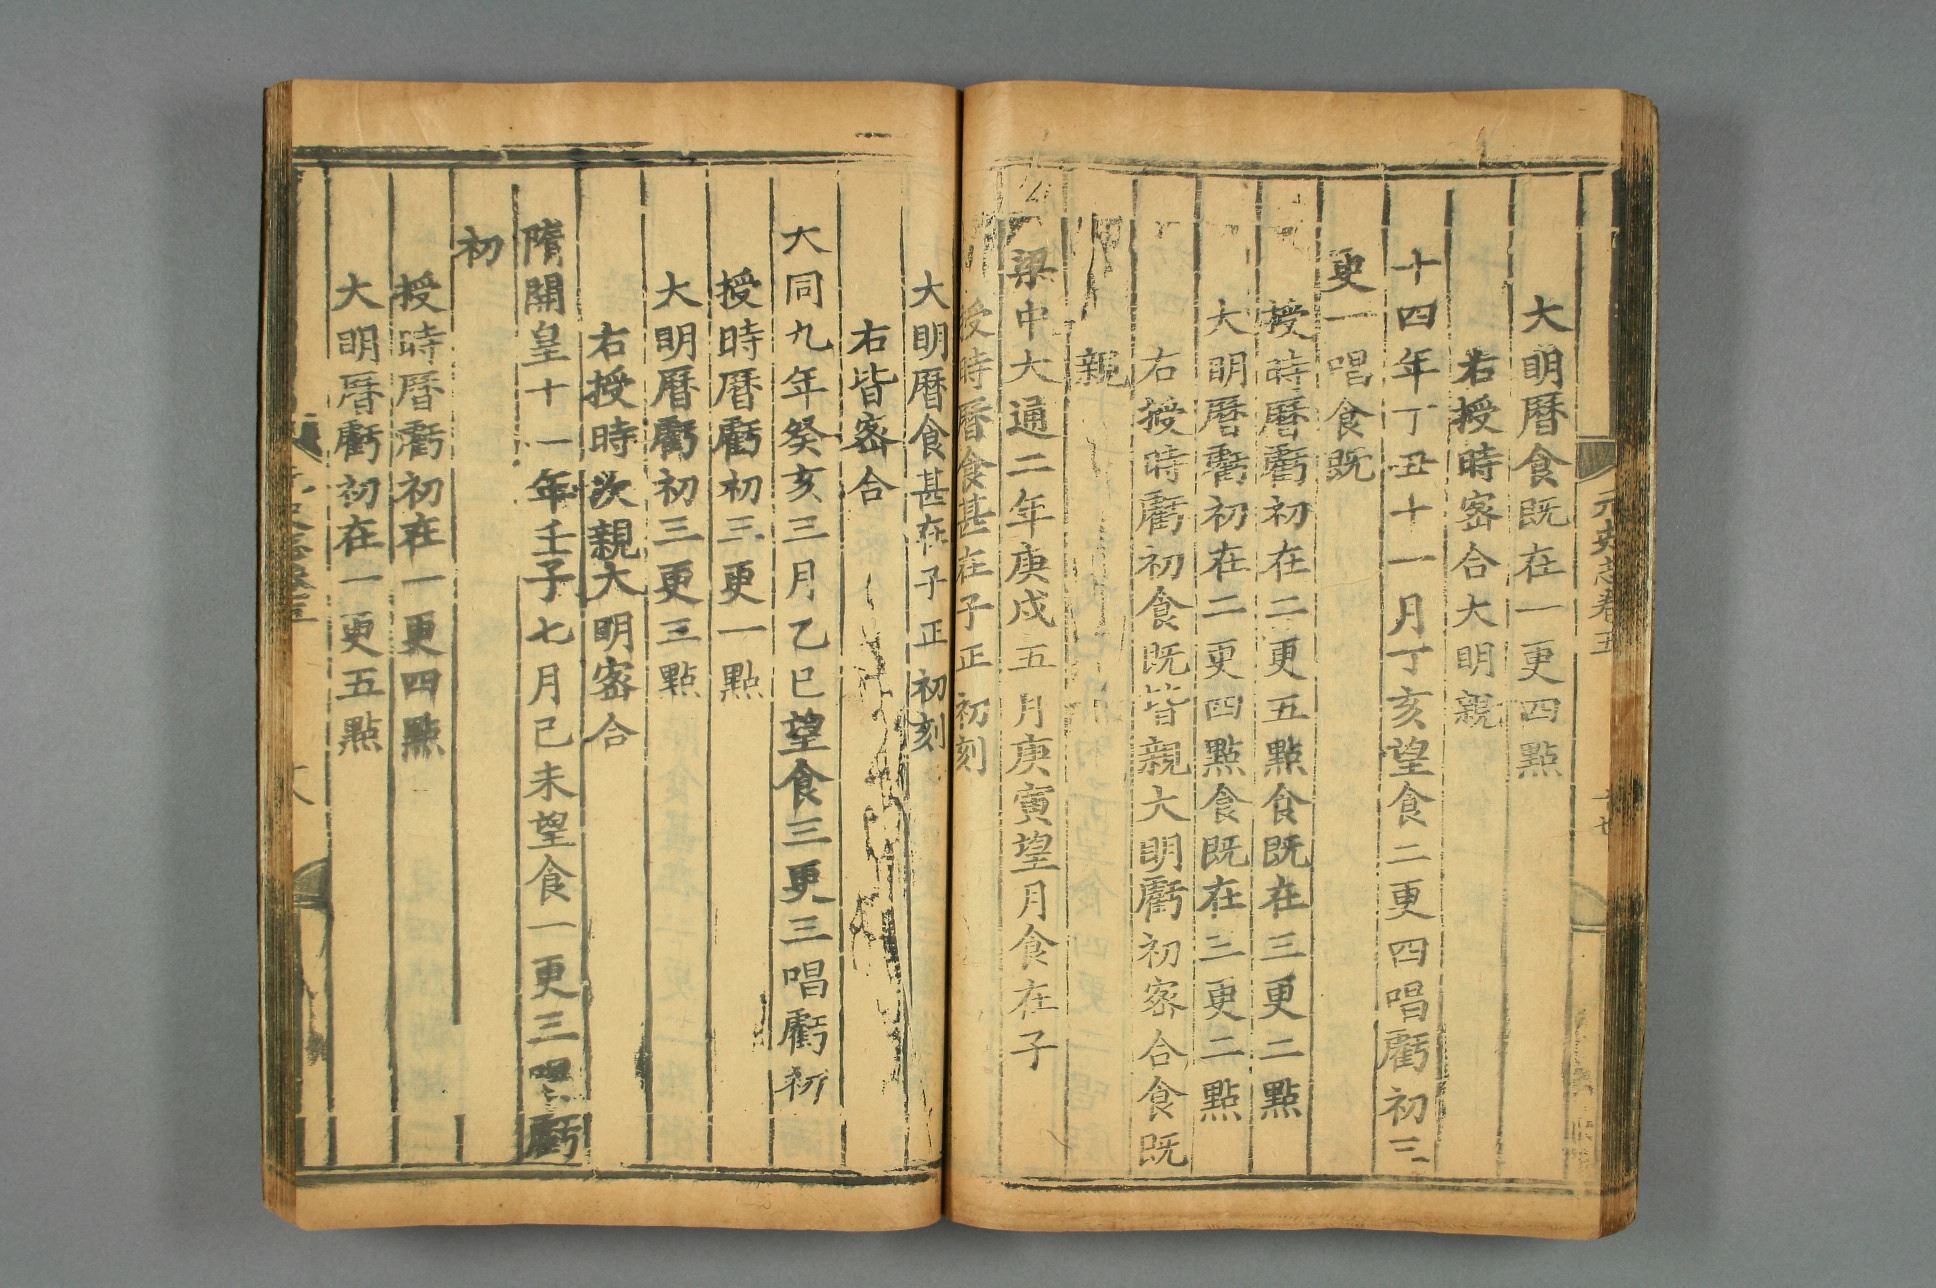 元史志卷五
大明曆食既在一更四點
右授時密合大明親
十四年丁丑十一月丁亥望食二更四唱虧初三
更一唱食既
授時曆虧初在二更五點食既在三更二點
大明曆虧初在二更四點食既在三更二點
右授時虧初食既皆親大明虧初密合食既
親
梁中大通二年庚戌五月庚寅望月食在子
授時曆食甚在子正初刻
大明曆食甚在子正初刻
右皆密合
大同九年癸亥三月乙巳望食三更三唱虧初
授時曆虧初三更一點
大明曆虧初三更三點
右授時次親大明密合
隋開皇十一年壬子七月己未望食一更三唱虧
初
授時曆虧初在一更四點
大明曆虧初在一更五點